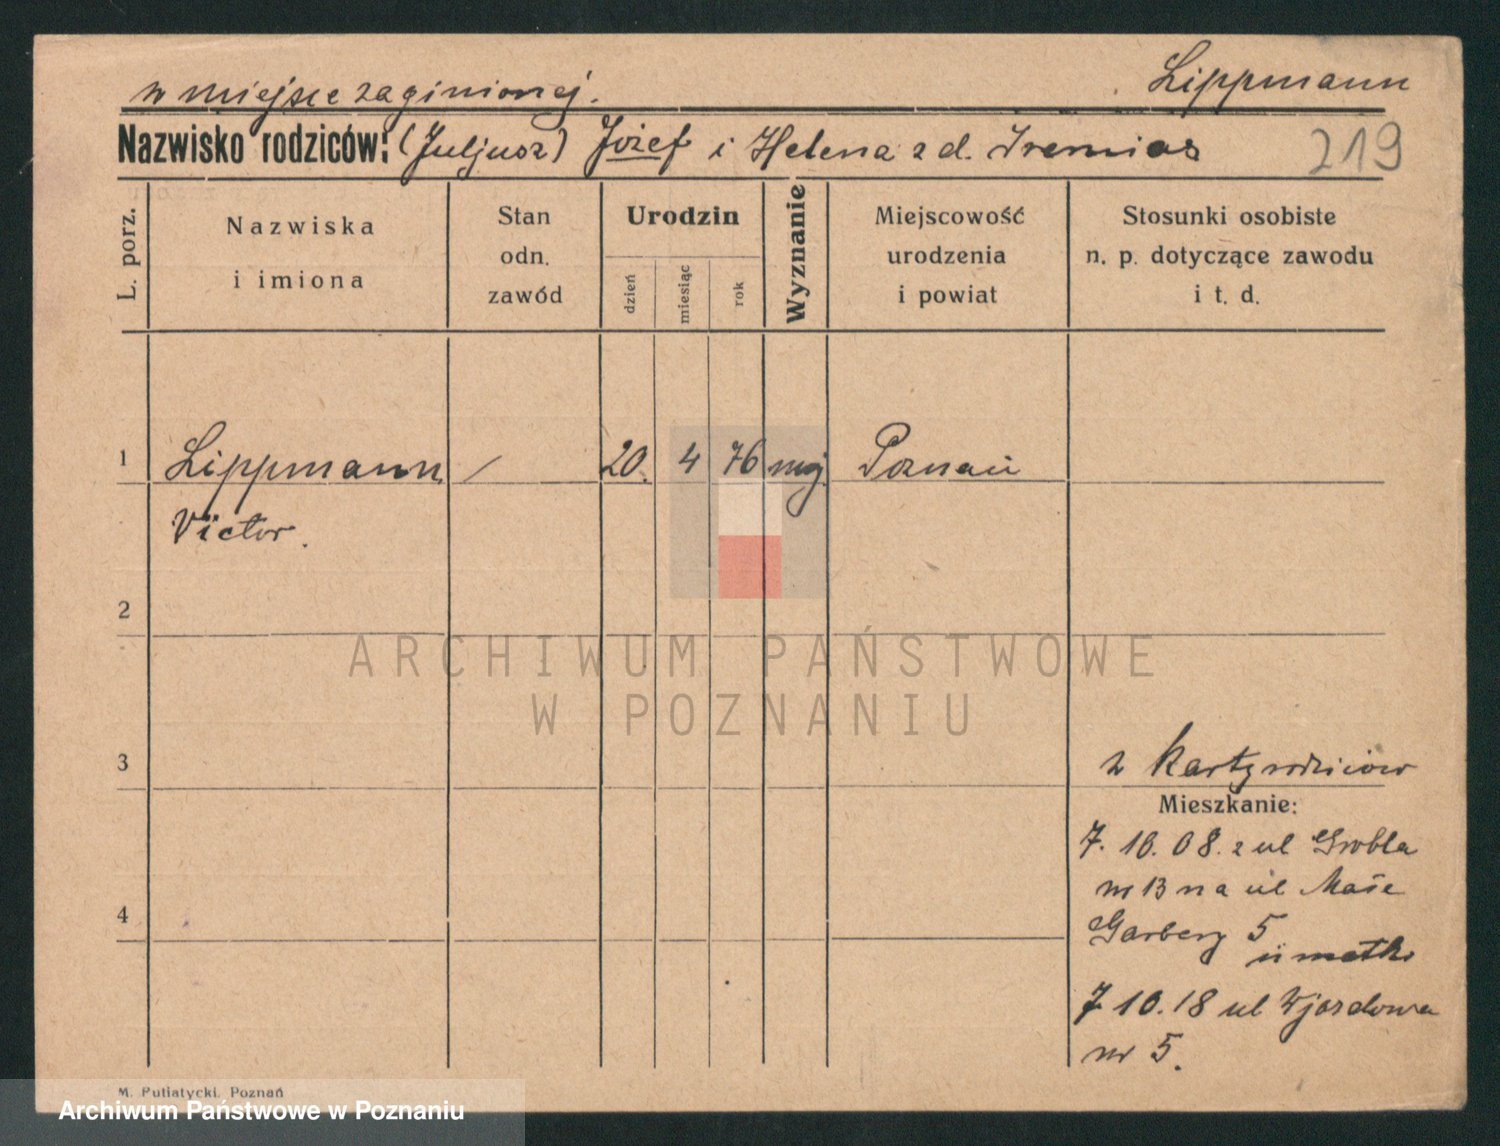 Lippmann
w miejsce zaginionej.
Nazwisko rodziców: (Juljusz) Józef i Helena z d. Iremias
219
L. porz.
Nazwiska
i imiona
Stan
odn.
zawód
Urodzin
dzień
miesiąc
rok
Wyznanie
Miejscowość
urodzenia
i powiat
Stosunki osobiste
n. p. dotyczące zawodu
i t. d.
1 Lippmann / 20. 4 76 moj. Poznań
Victor.
2
ARCHIWUM PAŃSTWOWE
W POZNANIU
3
z karty rodziców
Mieszkanie:
7. 10. 08. z ul Grobla
nr 13 na ul Małe
4
Garbery 5
u matki
7 10. 18 ul Wjazdowa
nr 5.
M. Putiatycki, Poznań
Archiwum Państwowe w Poznaniu